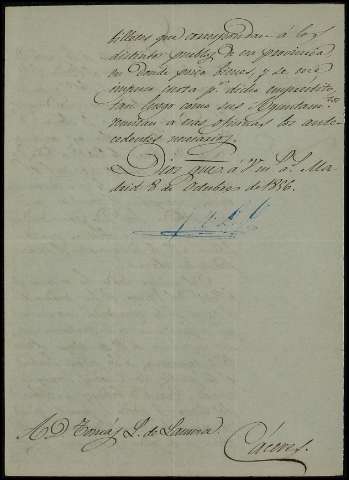 billetes que correspondan á los
distintos pueblos de esa provincia
en donde posea bienes, y se
cuota pª dicho empréstito,
tan luego como sus Ayuntam.tos
remitan á esas oficinas los ante-
cedentes necesarios.
Dios gue. á V. m.s a.s Ma-
drid 8 de Octubre de 1836.
A D. Tomás L. de Lamora.
Cáceres.